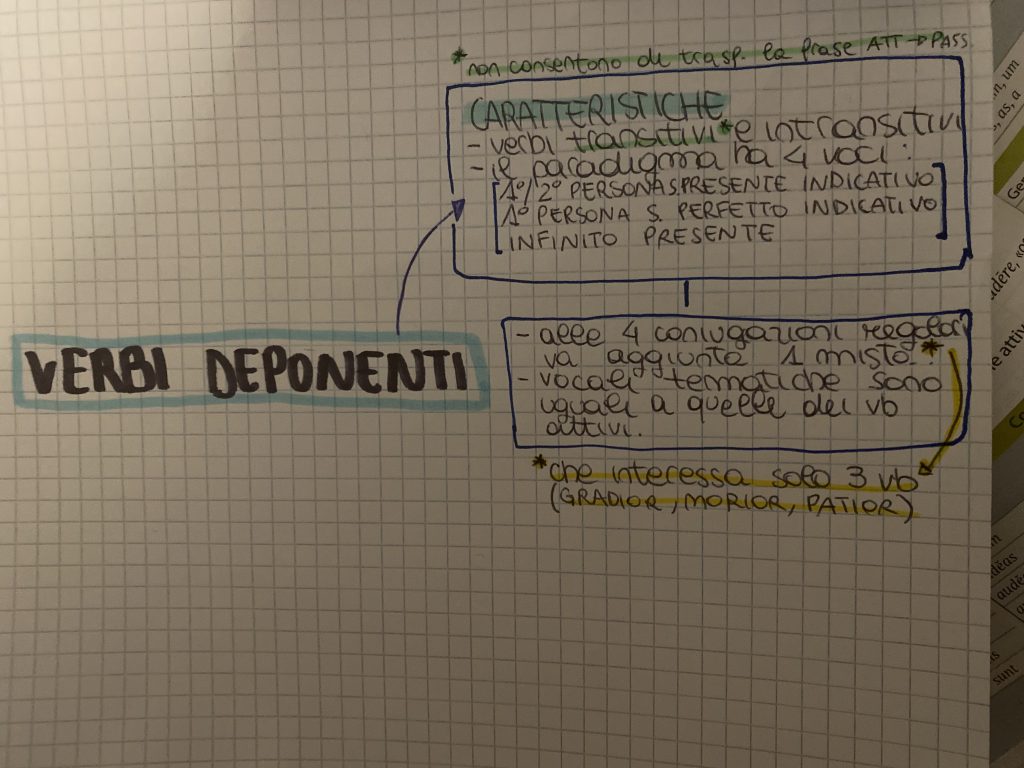 * non consentono di trasp. la frase ATT → PASS
CARATTERISTICHE
- verbi transitivi * e intransitivi
- il paradigma ha 4 voci:
1°/2° PERSONA S PRESENTE INDICATIVO
1° PERSONA S. PERFETTO INDICATIVO
INFINITO PRESENTE
VERBI DEPONENTI
- alle 4 coniugazioni regolari
va aggiunta 1 mista. *
- vocali tematiche sono
uguali a quelle dei vb
attivi.
* che interessa solo 3 vb
(GRADIOR, MORIOR, PATIOR)